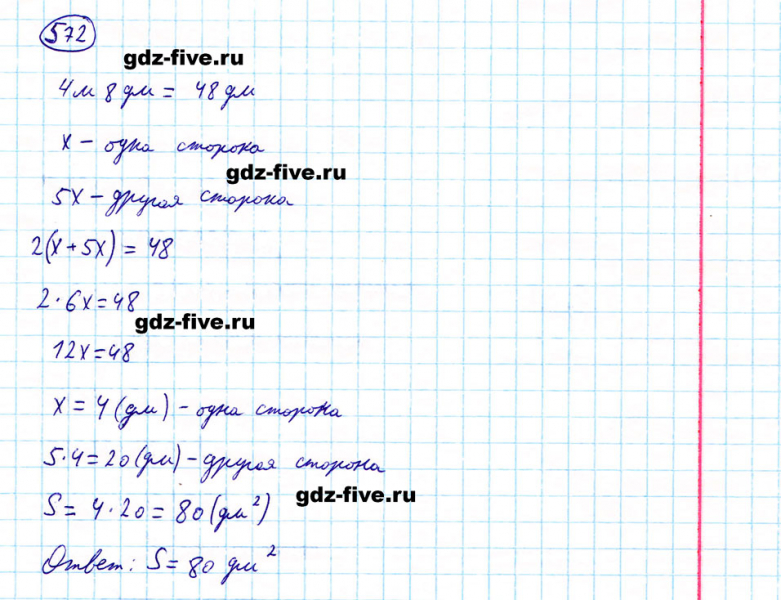 572
gdz-five.ru
4м 8дм = 48дм
x – одна сторона
gdz-five.ru
5x – другая сторона
2(x + 5x) = 48
2 · 6x = 48
gdz-five.ru
12x = 48
x = 4 (дм) – одна сторона
5·4 = 20 (дм) – другая сторона
gdz-five.ru
S = 4 · 20 = 80 (дм²)
Ответ: S = 80 дм²